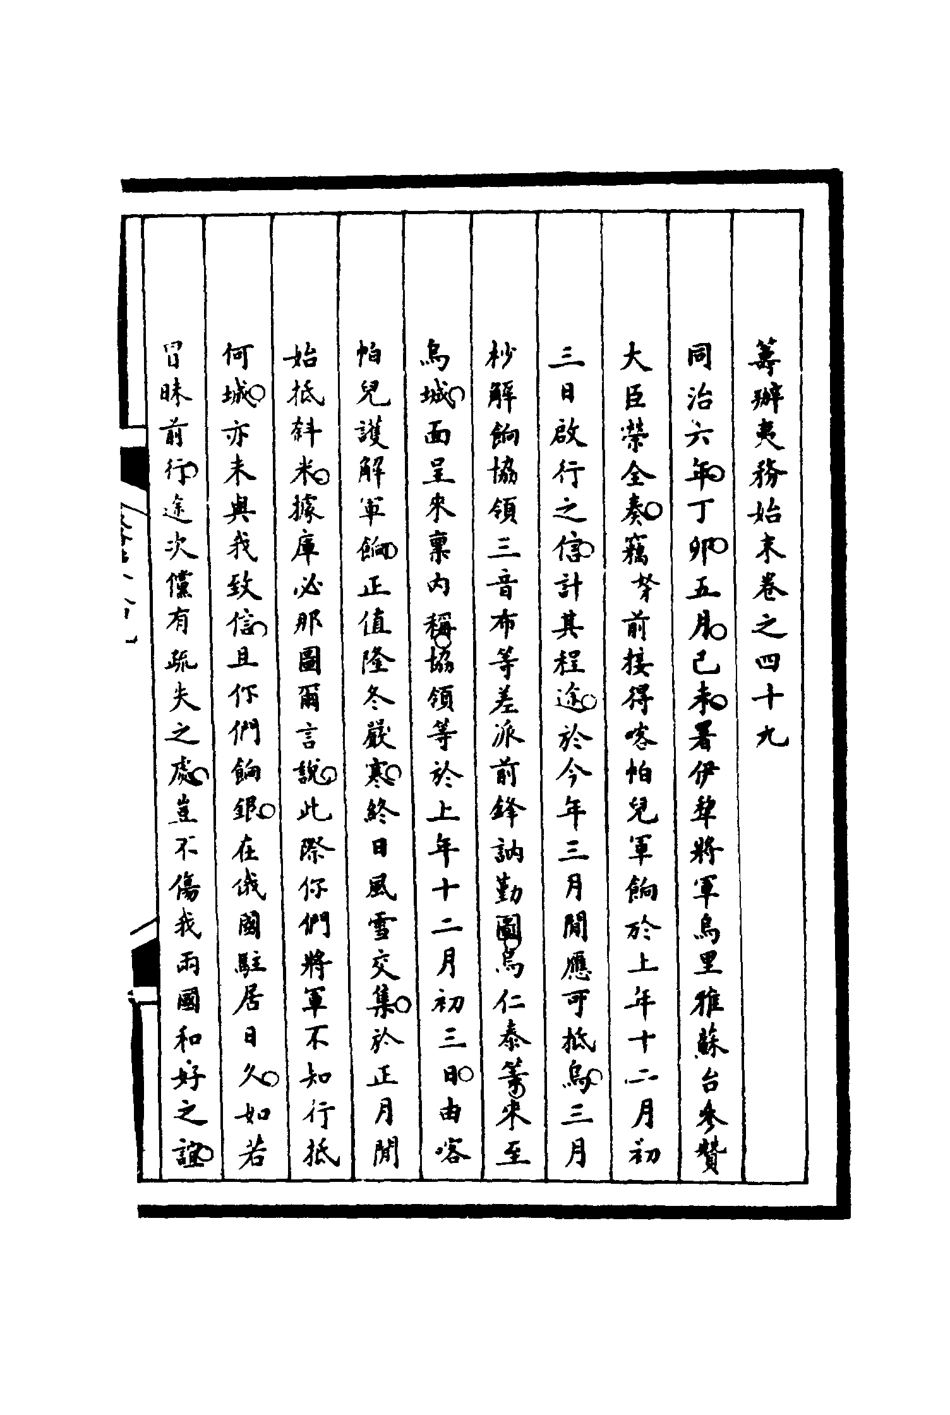 籌辦夷務始末卷之四十九
同治六年。丁卯。五月。己未。署伊犂將軍烏里雅蘇台參贊
大臣榮全奏。竊奴才前接得喀帕兒軍餉於上年十二月初
三日啟行之信。計其程途。於今年三月間應可抵烏。三月
杪解餉協領三音布等差派前鋒訥勤圖。烏仁泰等。來至
烏城。面呈來稟內稱。協領等於上年十二月初三日。由喀
帕兒護解軍餉。正值隆冬嚴寒。終日風雪交集。於正月間
始抵斜米。據庫必那圖爾言說。此際你們將軍不知行抵
何城。亦未與我致信。且你們餉銀。在俄國駐居日久。如若
冒昧前行。途次儻有疏失之處。豈不傷我兩國和好之誼。